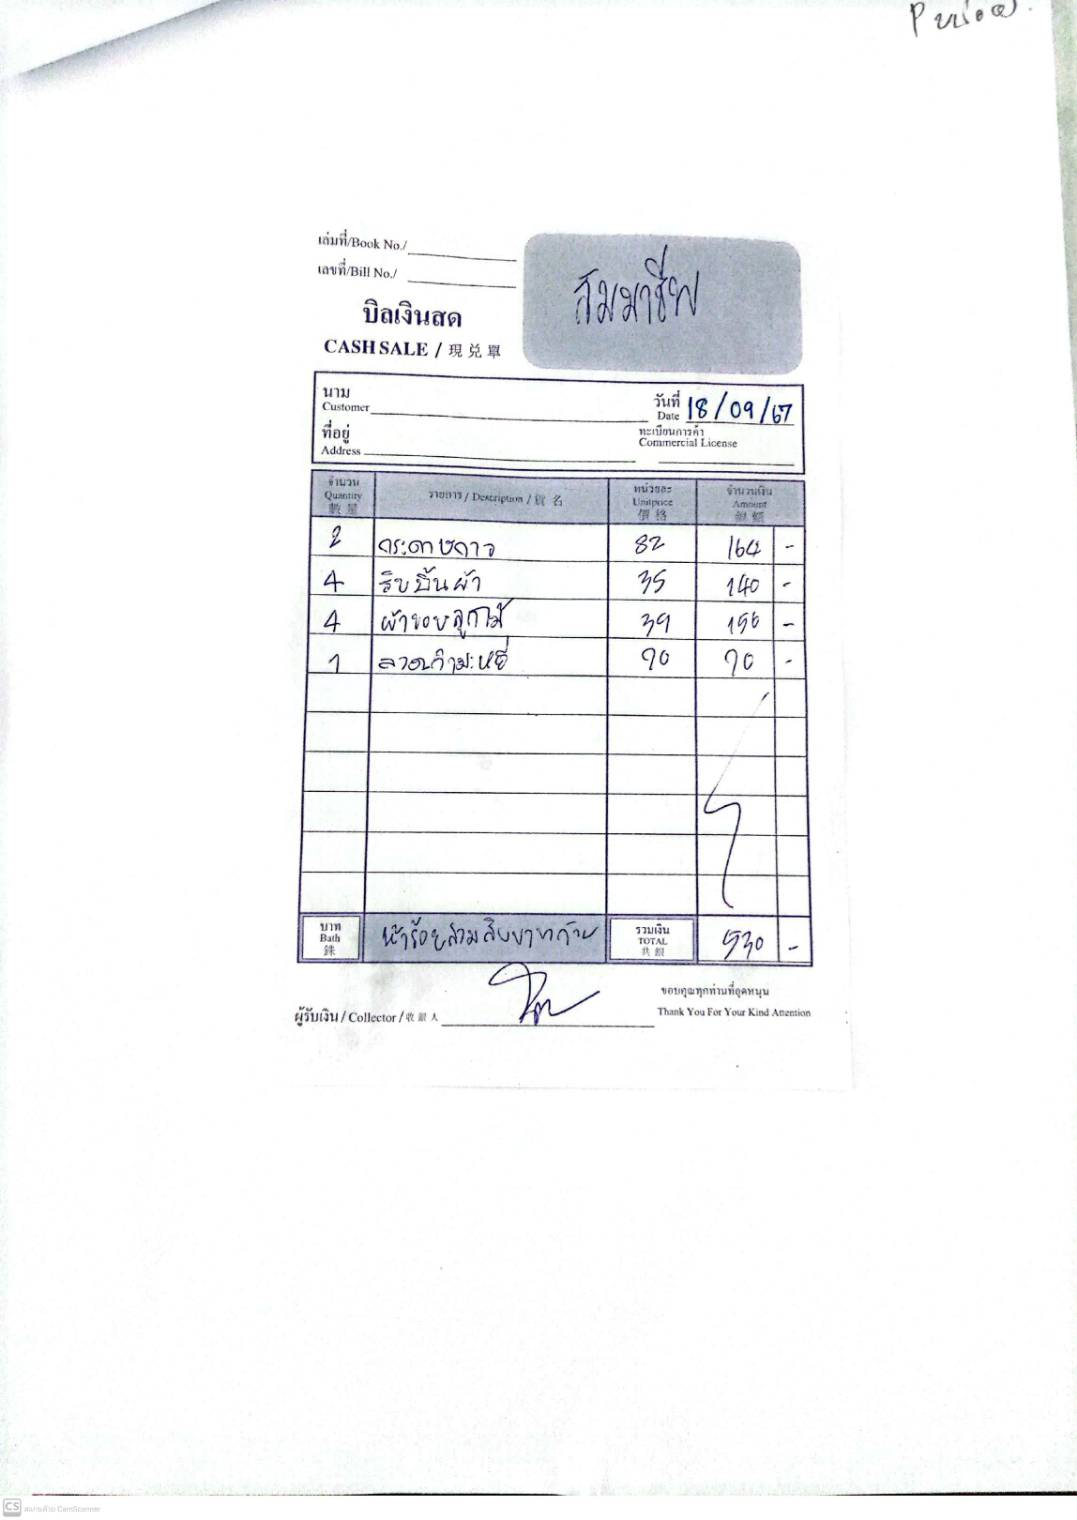 เล่มที่/Book No./
เลขที่/Bill No./
บิลเงินสด
CASH SALE / 現兑單
สัมมาชีพ
นาม
Customer
วันที่
Date 18/09/67
ที่อยู่
Address
ทะเบียนการค้า
Commercial License
จำนวน Quantity 數量 รายการ / Description / 貨名 หน่วยละ Unitprice 價格 จำนวนเงิน Amount 銀額
2 กระดาษกาว 82 164 -
4 ริบบิ้นผ้า 35 140 -
4 ผ้าขอบลูกไม้ 39 156 -
1 ลวดกำมะหยี่ 70 70 -
บาท Bath 銖 ห้าร้อยสามสิบบาทถ้วน รวมเงิน TOTAL 共銀 530 -
ขอบคุณทุกท่านที่อุดหนุน
ผู้รับเงิน / Collector / 收銀人
Thank You For Your Kind Attention
CS สแกนด้วย CamScanner